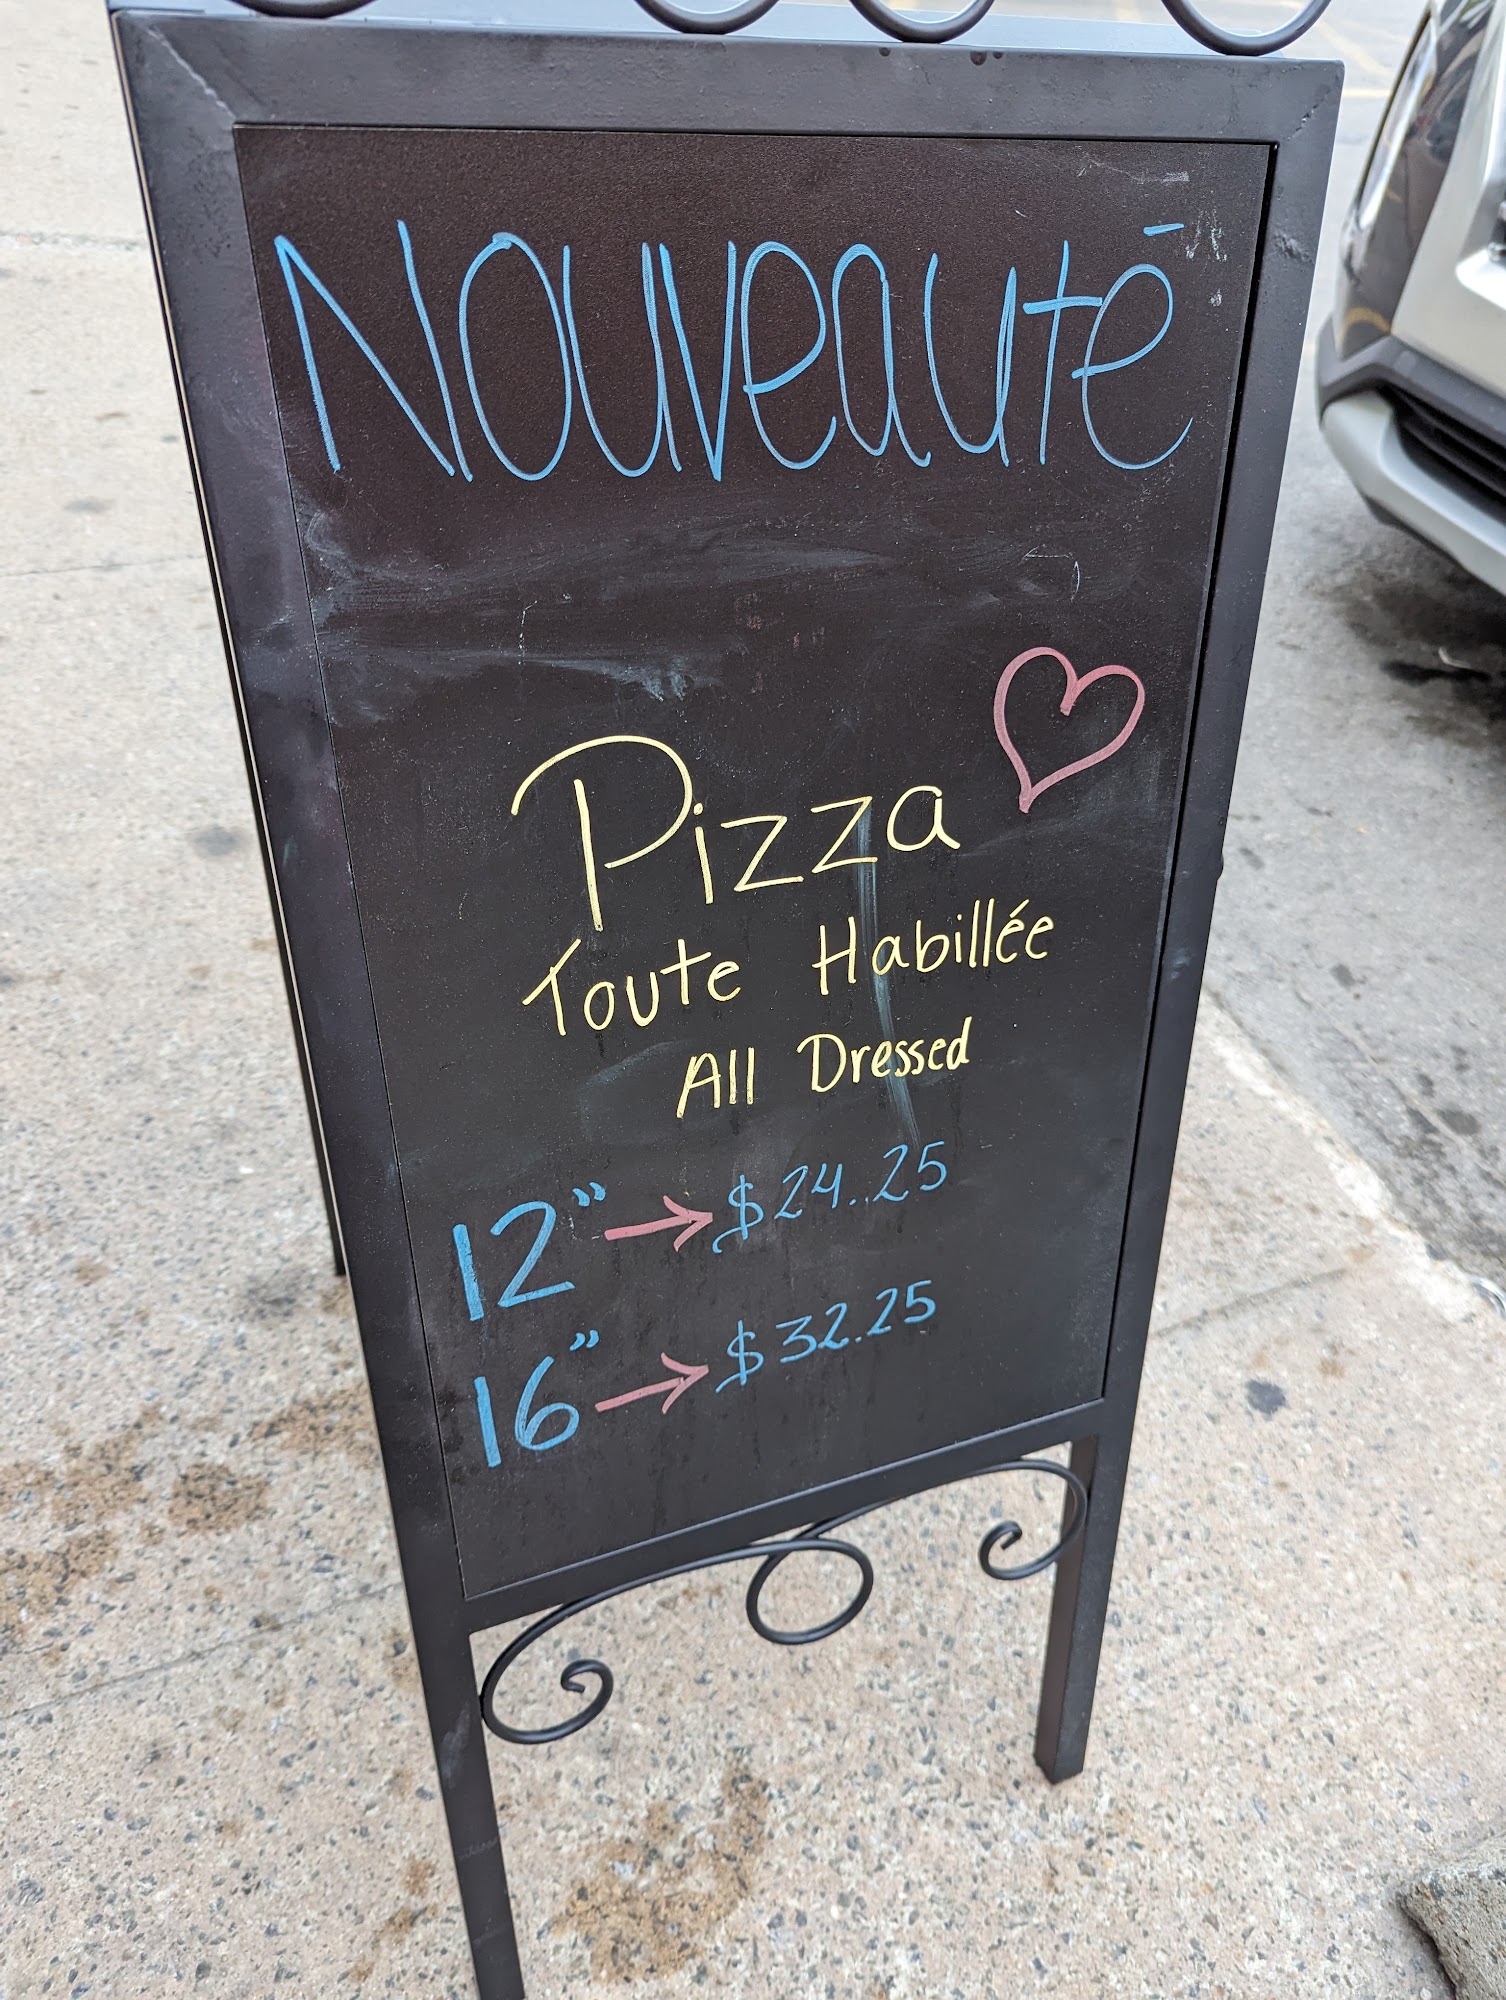 Nouveauté
Pizza
Toute Habillée
All Dressed
12" → $24.25
16" → $32.25